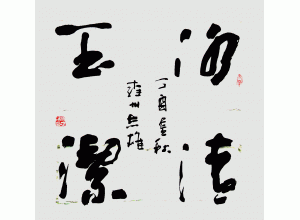 冰清
玉潔
丁酉金秋
州 雄